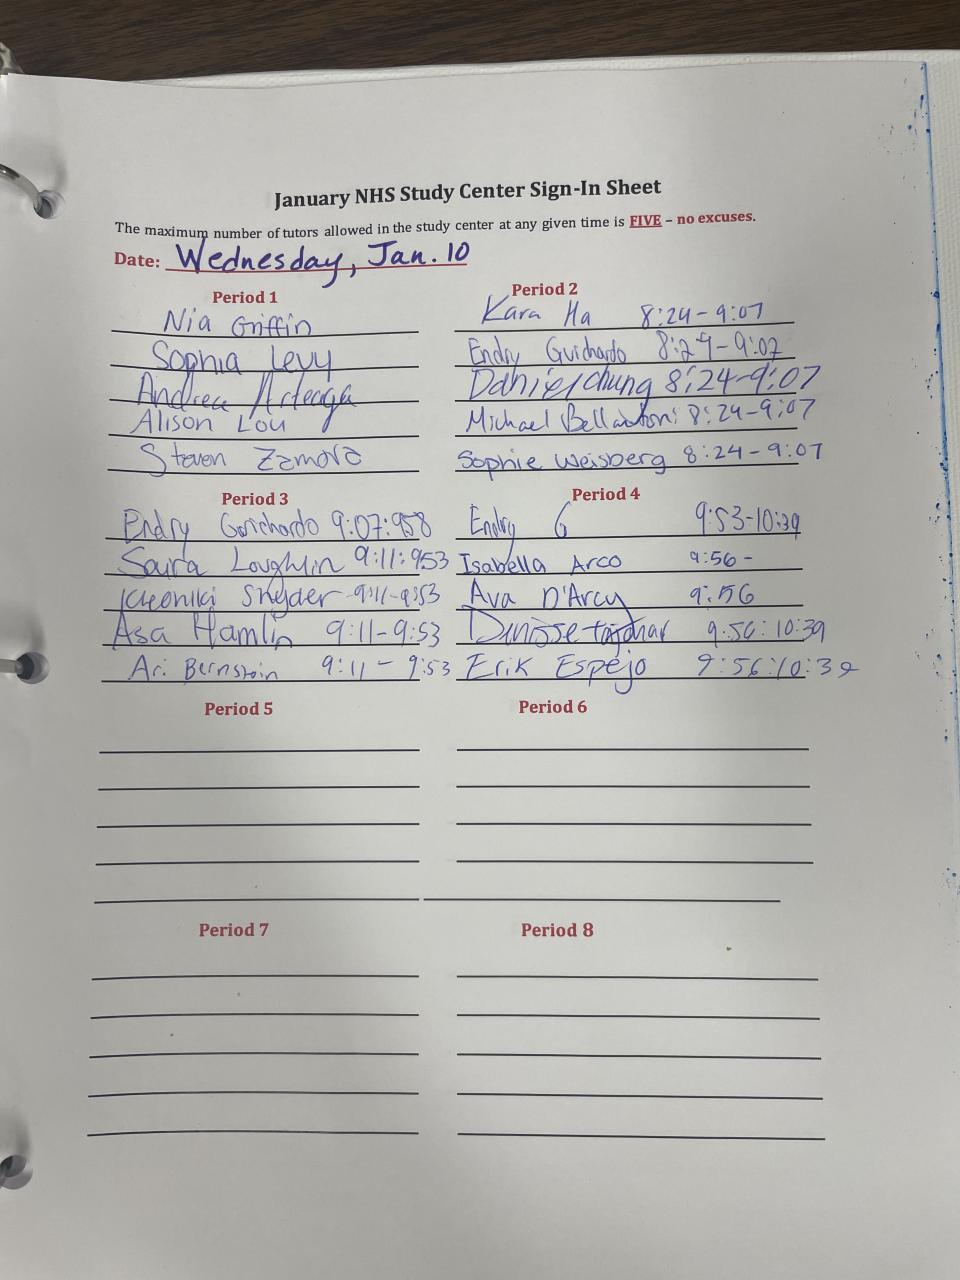 January NHS Study Center Sign-In Sheet
The maximum number of tutors allowed in the study center at any given time is FIVE – no excuses.
Date: Wednesday, Jan. 10
Period 1
Nia Griffin
Sophia Levy
Andrea Arteaga
Alison Lou
Steven Zamora
Period 2
Kara Ha 8:24-9:07
Endry Guichardo 8:24-9:07
Daniel chung 8:24-9:07
Michael Bellantoni 8:24-9:07
Sophie Weisberg 8:24-9:07
Period 3
Endry Guichardo 9:07:958
Saira Loughlin 9:11:953
Snyder 9:11-9:53
Asa Hamlin 9:11-9:53
Ari Bernstein 9:11-9:53
Period 4
Endry G 9:53-10:39
Isabella Arco 9:56-
Ava D'Arcy 9:56
9:56:10:39
Erik Espejo 9:56:10:39
Period 5
Period 6
Period 7
Period 8